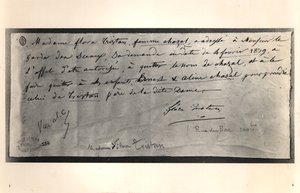 Madame flora Tristan, femme chazal, a adressé à Monsieur le
Garde des Sceaux, Sa demande en date de 1er février 1839, à
l'effet d'être autorisée, à quitter le nom de chazal, et à le
faire quitter à ses enfants, Ernest & Aline chazal pour prendre
celui de Tristan père de la dite Dame.
flora Tristan
Rue du Bac
Madame Flora Tristan